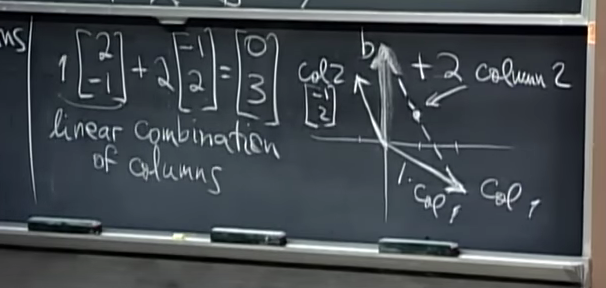 ns
1 [2 -1] + 2 [-1 2] = [0 3]
linear combination
of columns
b
+2 column 2
col 2
[-1 2]
1. col 1
Col 1